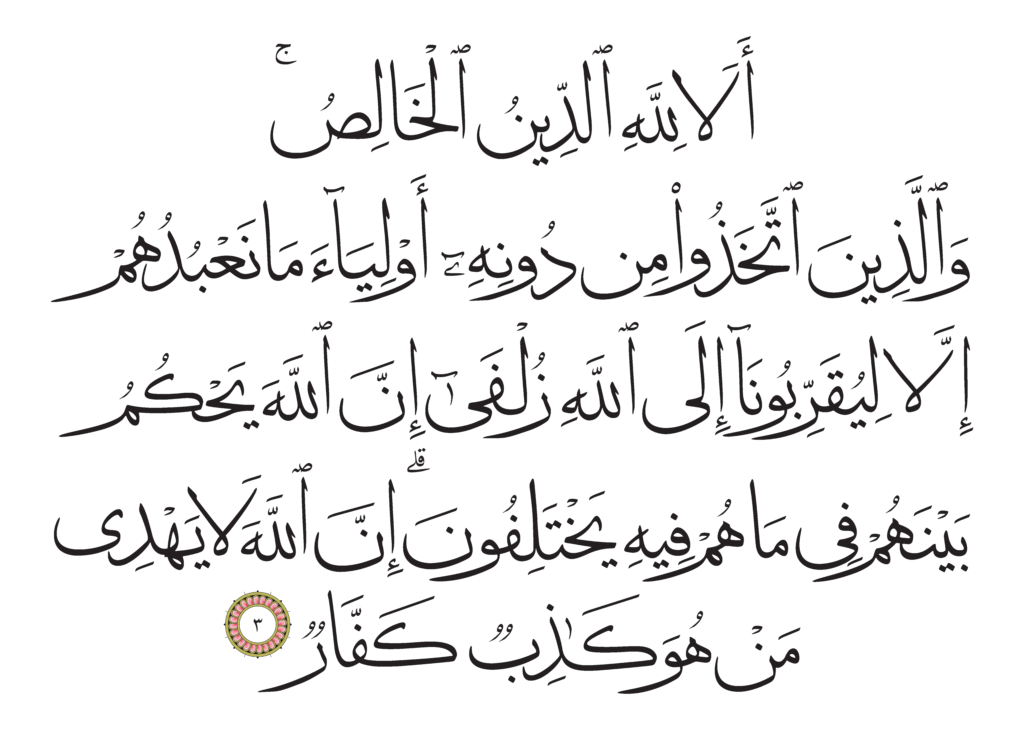 أَلَا لِلَّهِ ٱلدِّينُ ٱلْخَالِصُ ۚ
وَٱلَّذِينَ ٱتَّخَذُوا۟ مِن دُونِهِۦٓ أَوْلِيَآءَ مَا نَعْبُدُهُمْ
إِلَّا لِيُقَرِّبُونَآ إِلَى ٱللَّهِ زُلْفَىٰٓ إِنَّ ٱللَّهَ يَحْكُمُ
بَيْنَهُمْ فِى مَا هُمْ فِيهِ يَخْتَلِفُونَ ۗ إِنَّ ٱللَّهَ لَا يَهْدِى
مَنْ هُوَ كَـٰذِبٌ كَفَّارٌ ٣